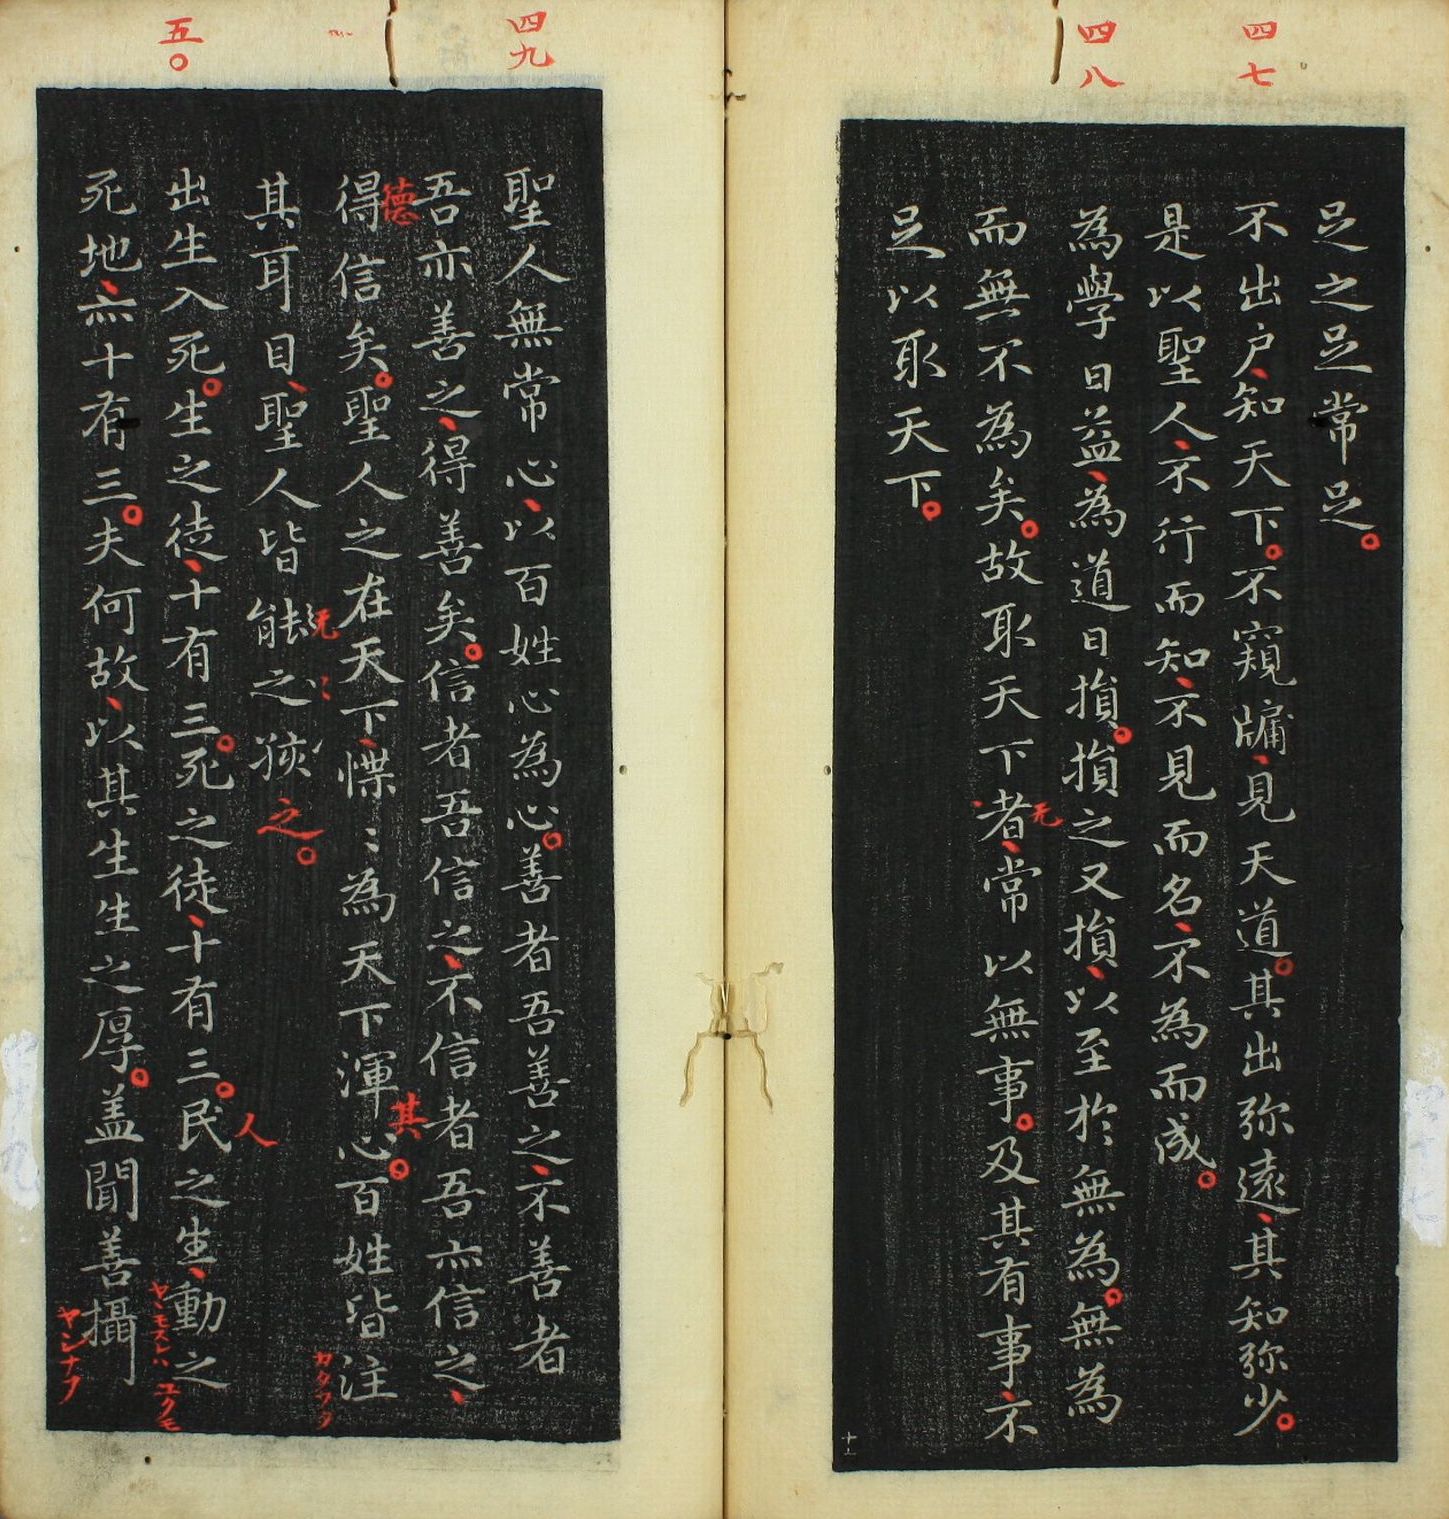 四七
四八
足之足常足。
不出户、知天下。不窺牖、見天道。其出弥遠、其知弥少。
是以聖人、不行而知、不見而名、不為而成。
為學日益、為道日損。損之又損、以至於無為。無為
而無不為矣。故取天下者、常以無事。及其有事不
无
足以取天下。
十一
四九
五〇
聖人無常心、以百姓心為心。善者吾善之、不善者
吾亦善之、得善矣。信者吾信之、不信者吾亦信之、
德
得信矣。聖人之在天下、惵〻為天下渾心。百姓皆注
其
其耳目、聖人皆㤝之
无
之。
出生入死。生之徒、十有三。死之徒、十有三。民之生、動之
人
死地、亦十有三。夫何故、以其生生之厚。盖聞善攝